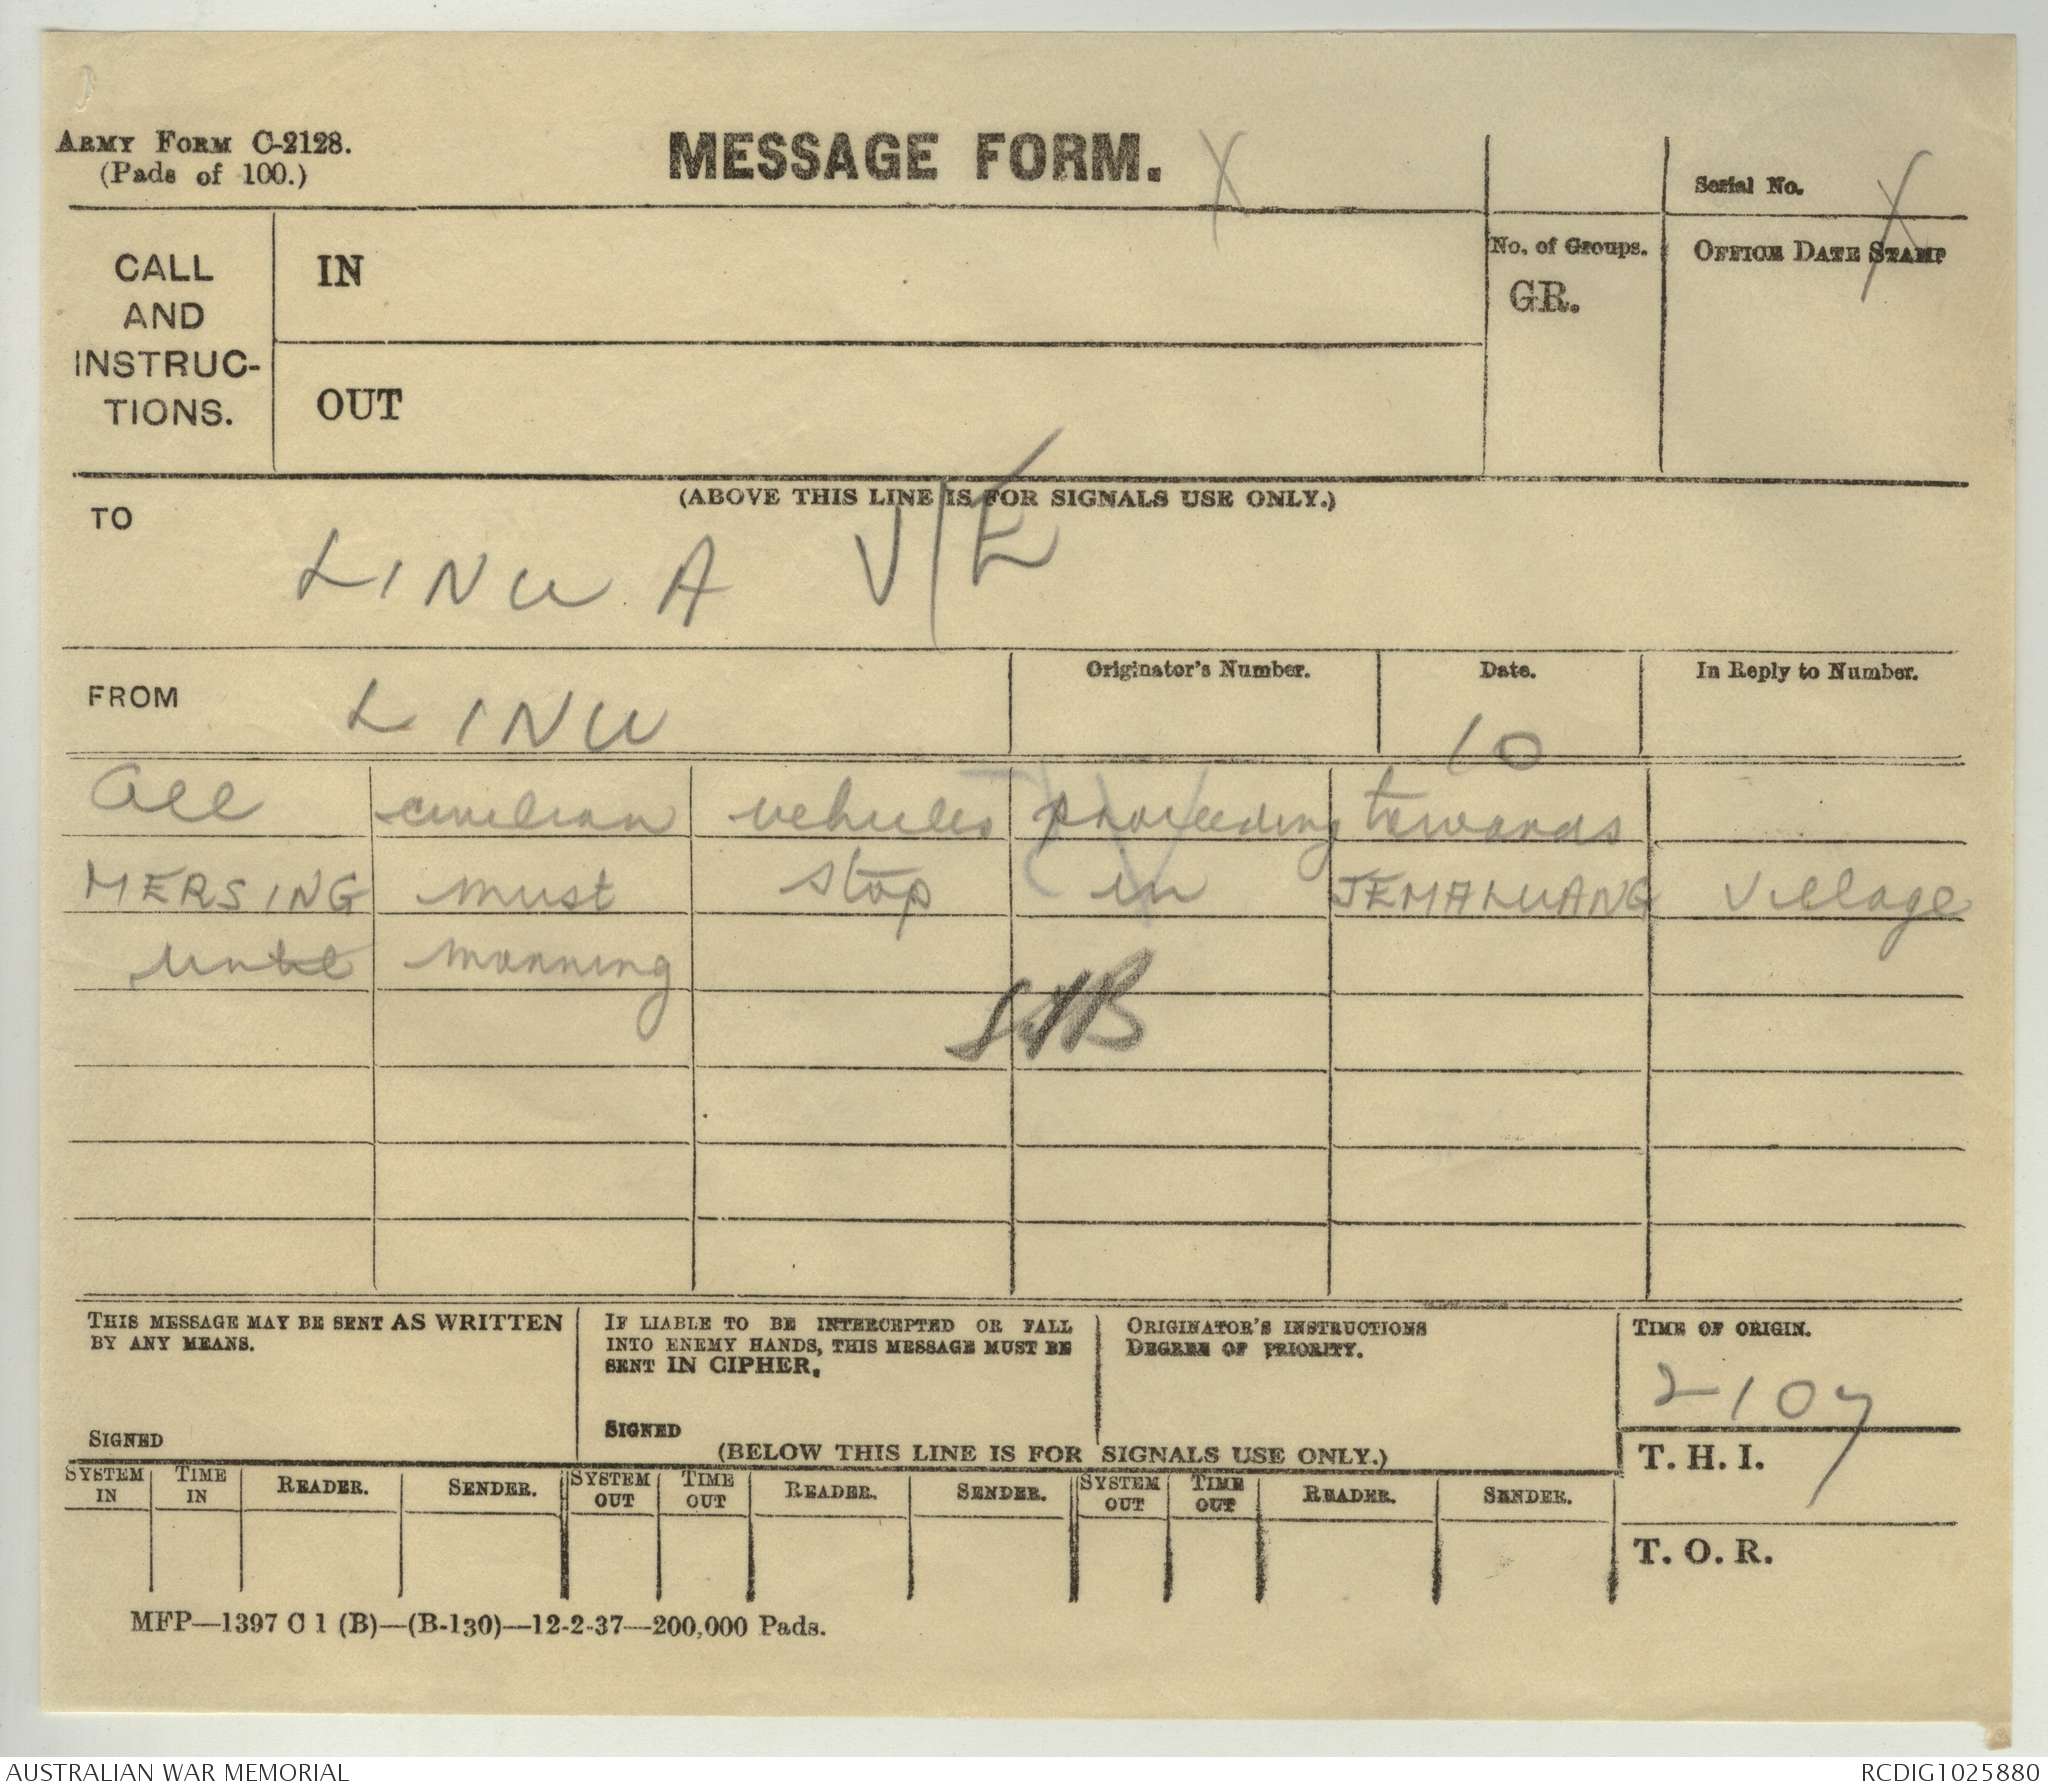 ARMY FORM C-2128.
(Pads of 100.)
MESSAGE FORM.
Serial No.
CALL
AND
INSTRUC-
TIONS.
IN
OUT
No. of Groups.
GR.
OFFICE DATE STAMP
(ABOVE THIS LINE IS FOR SIGNALS USE ONLY.)
TO
LINU A
FROM
LINU
Originator's Number.
Date.
10
In Reply to Number.
All civilian vehicles proceeding towards
MERSING must stop in JEMALUANG Village
until morning
THIS MESSAGE MAY BE SENT AS WRITTEN
BY ANY MEANS.
SIGNED
IF LIABLE TO BE INTERCEPTED OR FALL
INTO ENEMY HANDS, THIS MESSAGE MUST BE
SENT IN CIPHER.
SIGNED
ORIGINATOR'S INSTRUCTIONS
DEGREE OF PRIORITY.
TIME OF ORIGIN.
2107
(BELOW THIS LINE IS FOR SIGNALS USE ONLY.)
T. H. I.
SYSTEM IN TIME IN READER. SENDER. SYSTEM OUT TIME OUT READER. SENDER. SYSTEM OUT TIME OUT READER. SENDER.
T. O. R.
MFP—1397 C 1 (B)—(B-130)—12-2-37—200,000 Pads.
AUSTRALIAN WAR MEMORIAL
RCDIG1025880